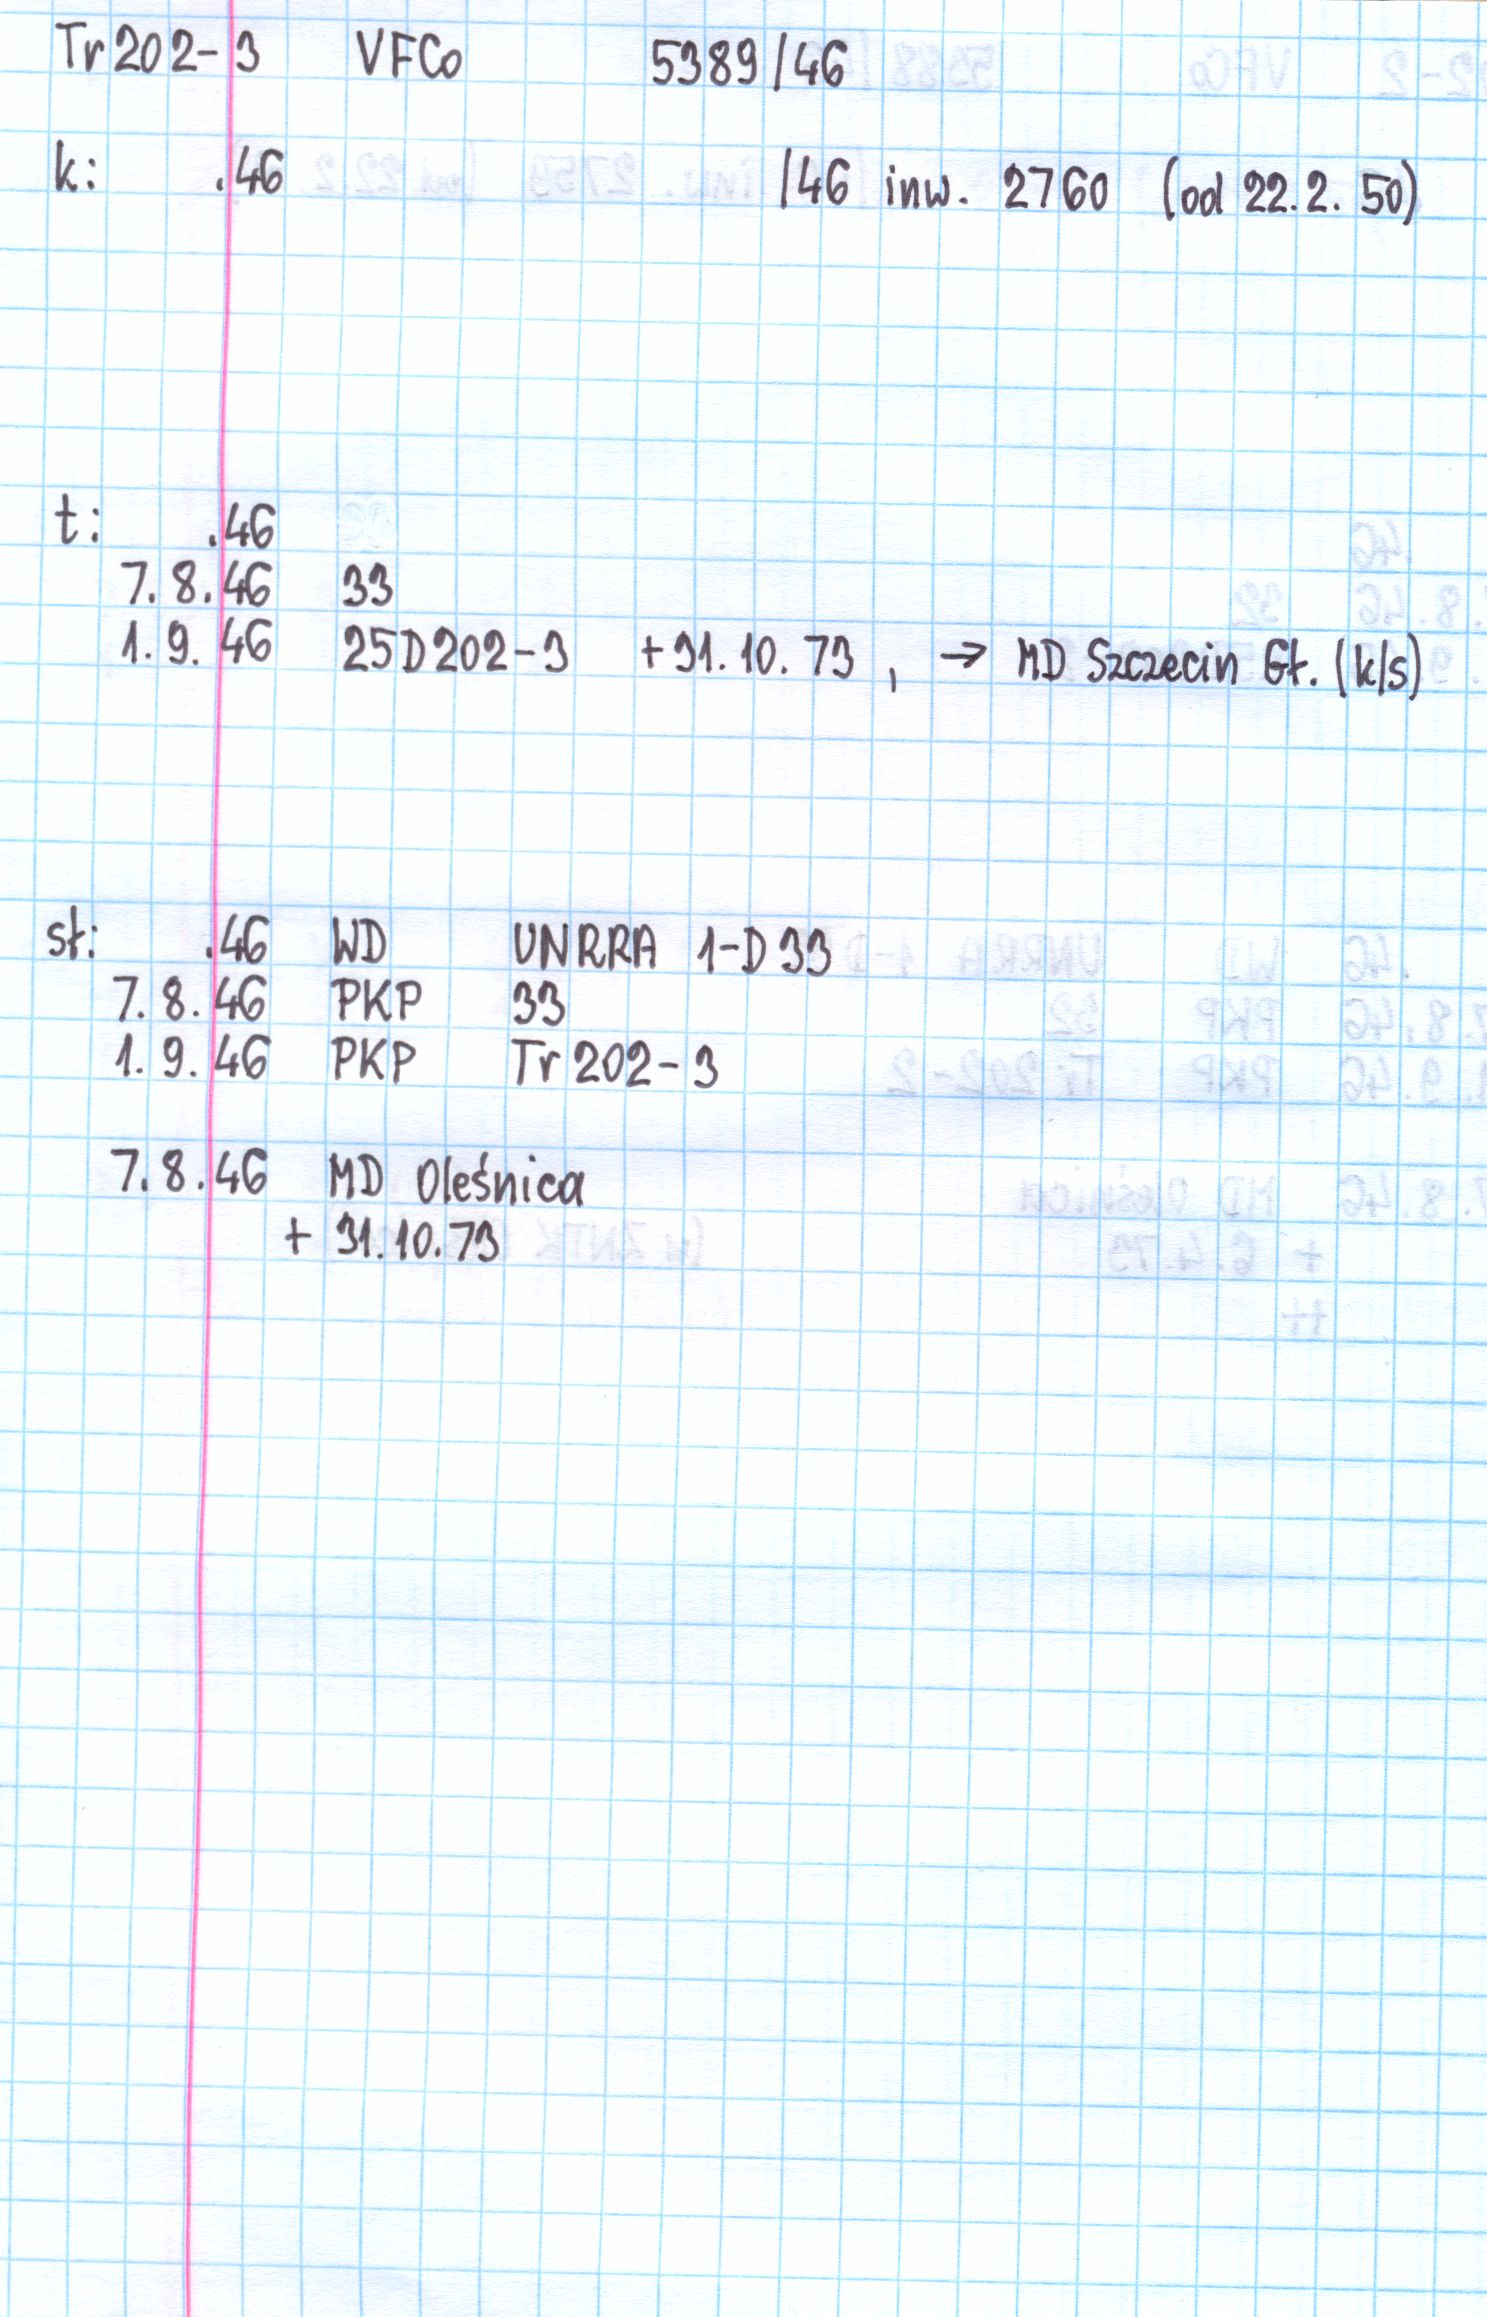 Tr 202-3 VFCo 5389/46
k: .46 /46 inw. 2760 (od 22.2.50)
t: .46
7.8.46 33
1.9.46 25D202-3 +31.10.73, → MD Szczecin Gł. (k/s)
sł: .46 WD UNRRA 1-D33
7.8.46 PKP 33
1.9.46 PKP Tr 202-3
7.8.46 MD Oleśnica
+ 31.10.73